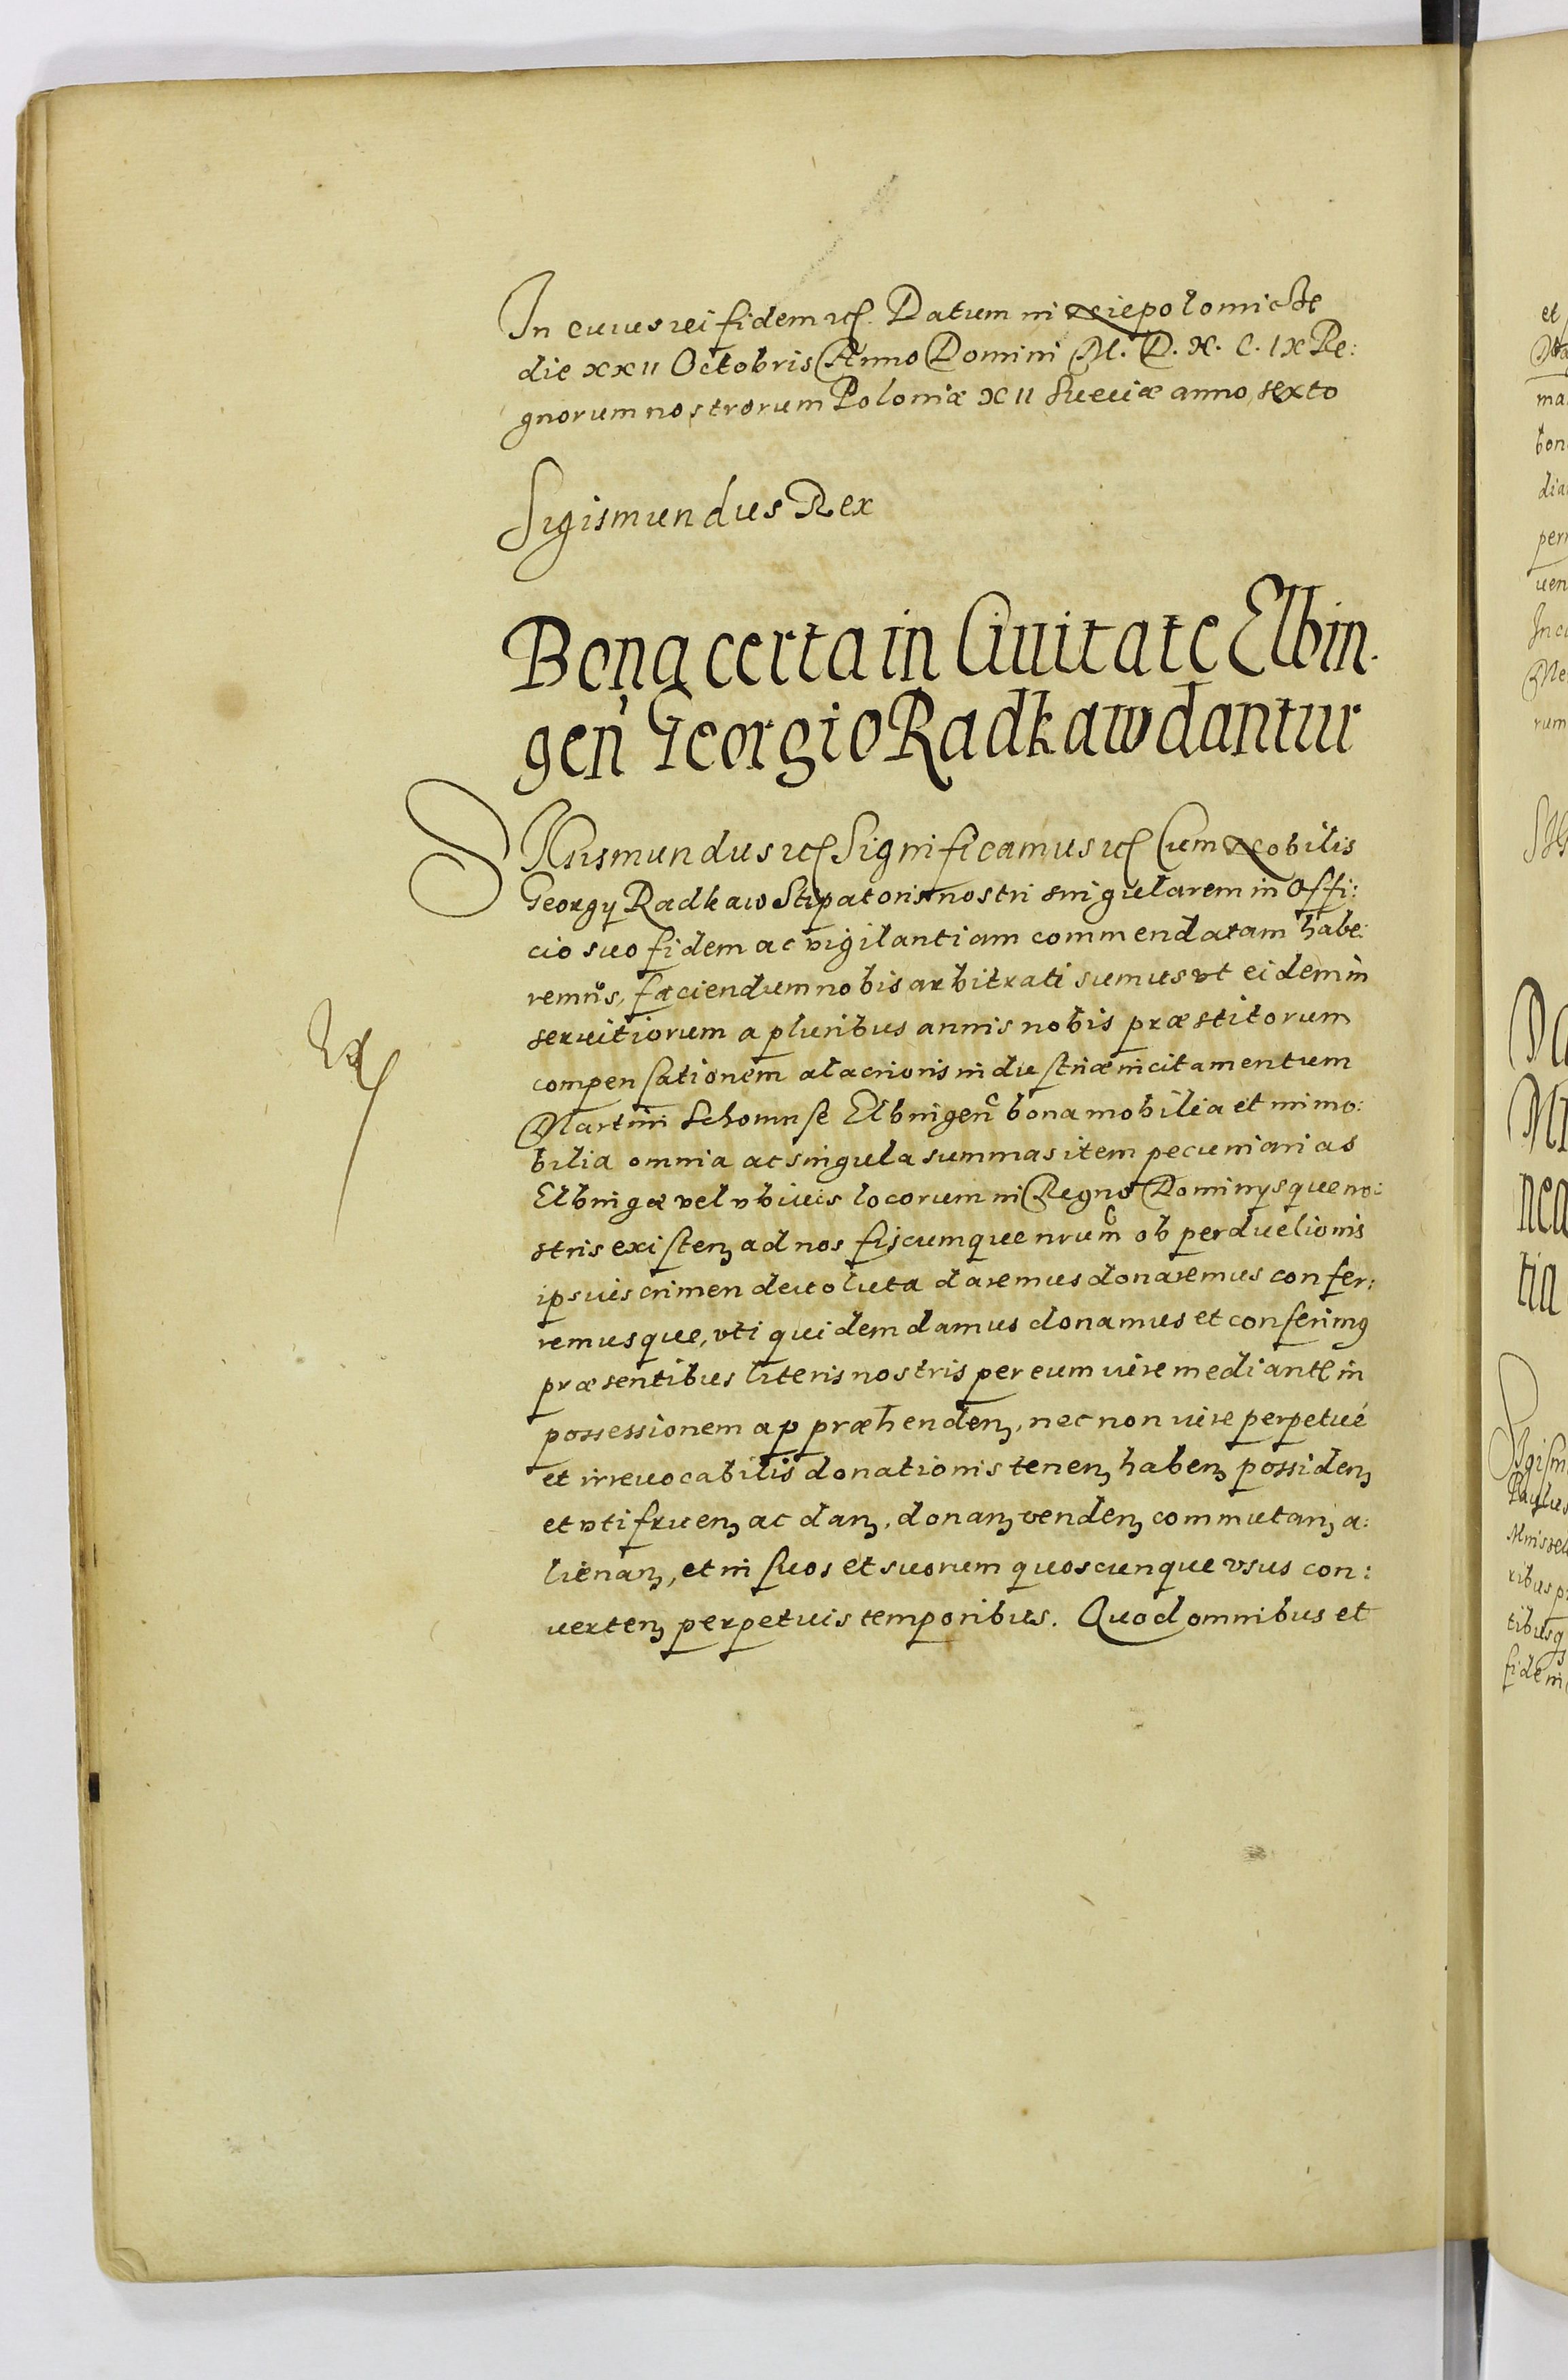 In cuius rei fidem etc. Datum in Niepolomicze
die XXII Octobris Anno Domini M. D. X. C. IX Re:
gnorum nostrorum Poloniæ XII Sueciæ anno, sexto
Sigismundus Rex
Bona certa in Ciuitate Elbin.
gen̄ Georgio Radkaw dantur
SIgismundus etc Significamus etc Cum Nobilis
Georgij Radkaw Stipatoris nostri singularem in Offi:
cio suo fidem ac vigilantiam commendatam habe:
remus, faciendum nobis arbitrati sumus vt eidem in
seruitiorum a pluribus annis nobis præstitorum
compensationem alacrioris industriæ incitamentum
Martini Schomse Elbingen̄ bona mobilia et immo:
bilia omnia ac singula summas item pecuniarias
Elbingæ vel vbiuis locorum in Regno Dominijsque no:
stris existenꝫ ad nos fiscumque nrum̄ ob perduelionis
ipsius crimen deuoluta daremus donaremus confer:
remusque, vti quidem damus donamus et conferimꝰ
præsentibus literis nostris per eum iure mediante in
possessionem appræhendenꝫ, nec non iure perpetué
et irreuocabilis donationis tenenꝫ habenꝫ possidenꝫ
et vtifruenꝫ ac danꝫ, donanꝫ vendenꝫ commutanꝫ a:
lienanꝫ, et in suos et suorum quoscunque vsus con:
uertenꝫ perpetuis temporibus. Quod omnibus et